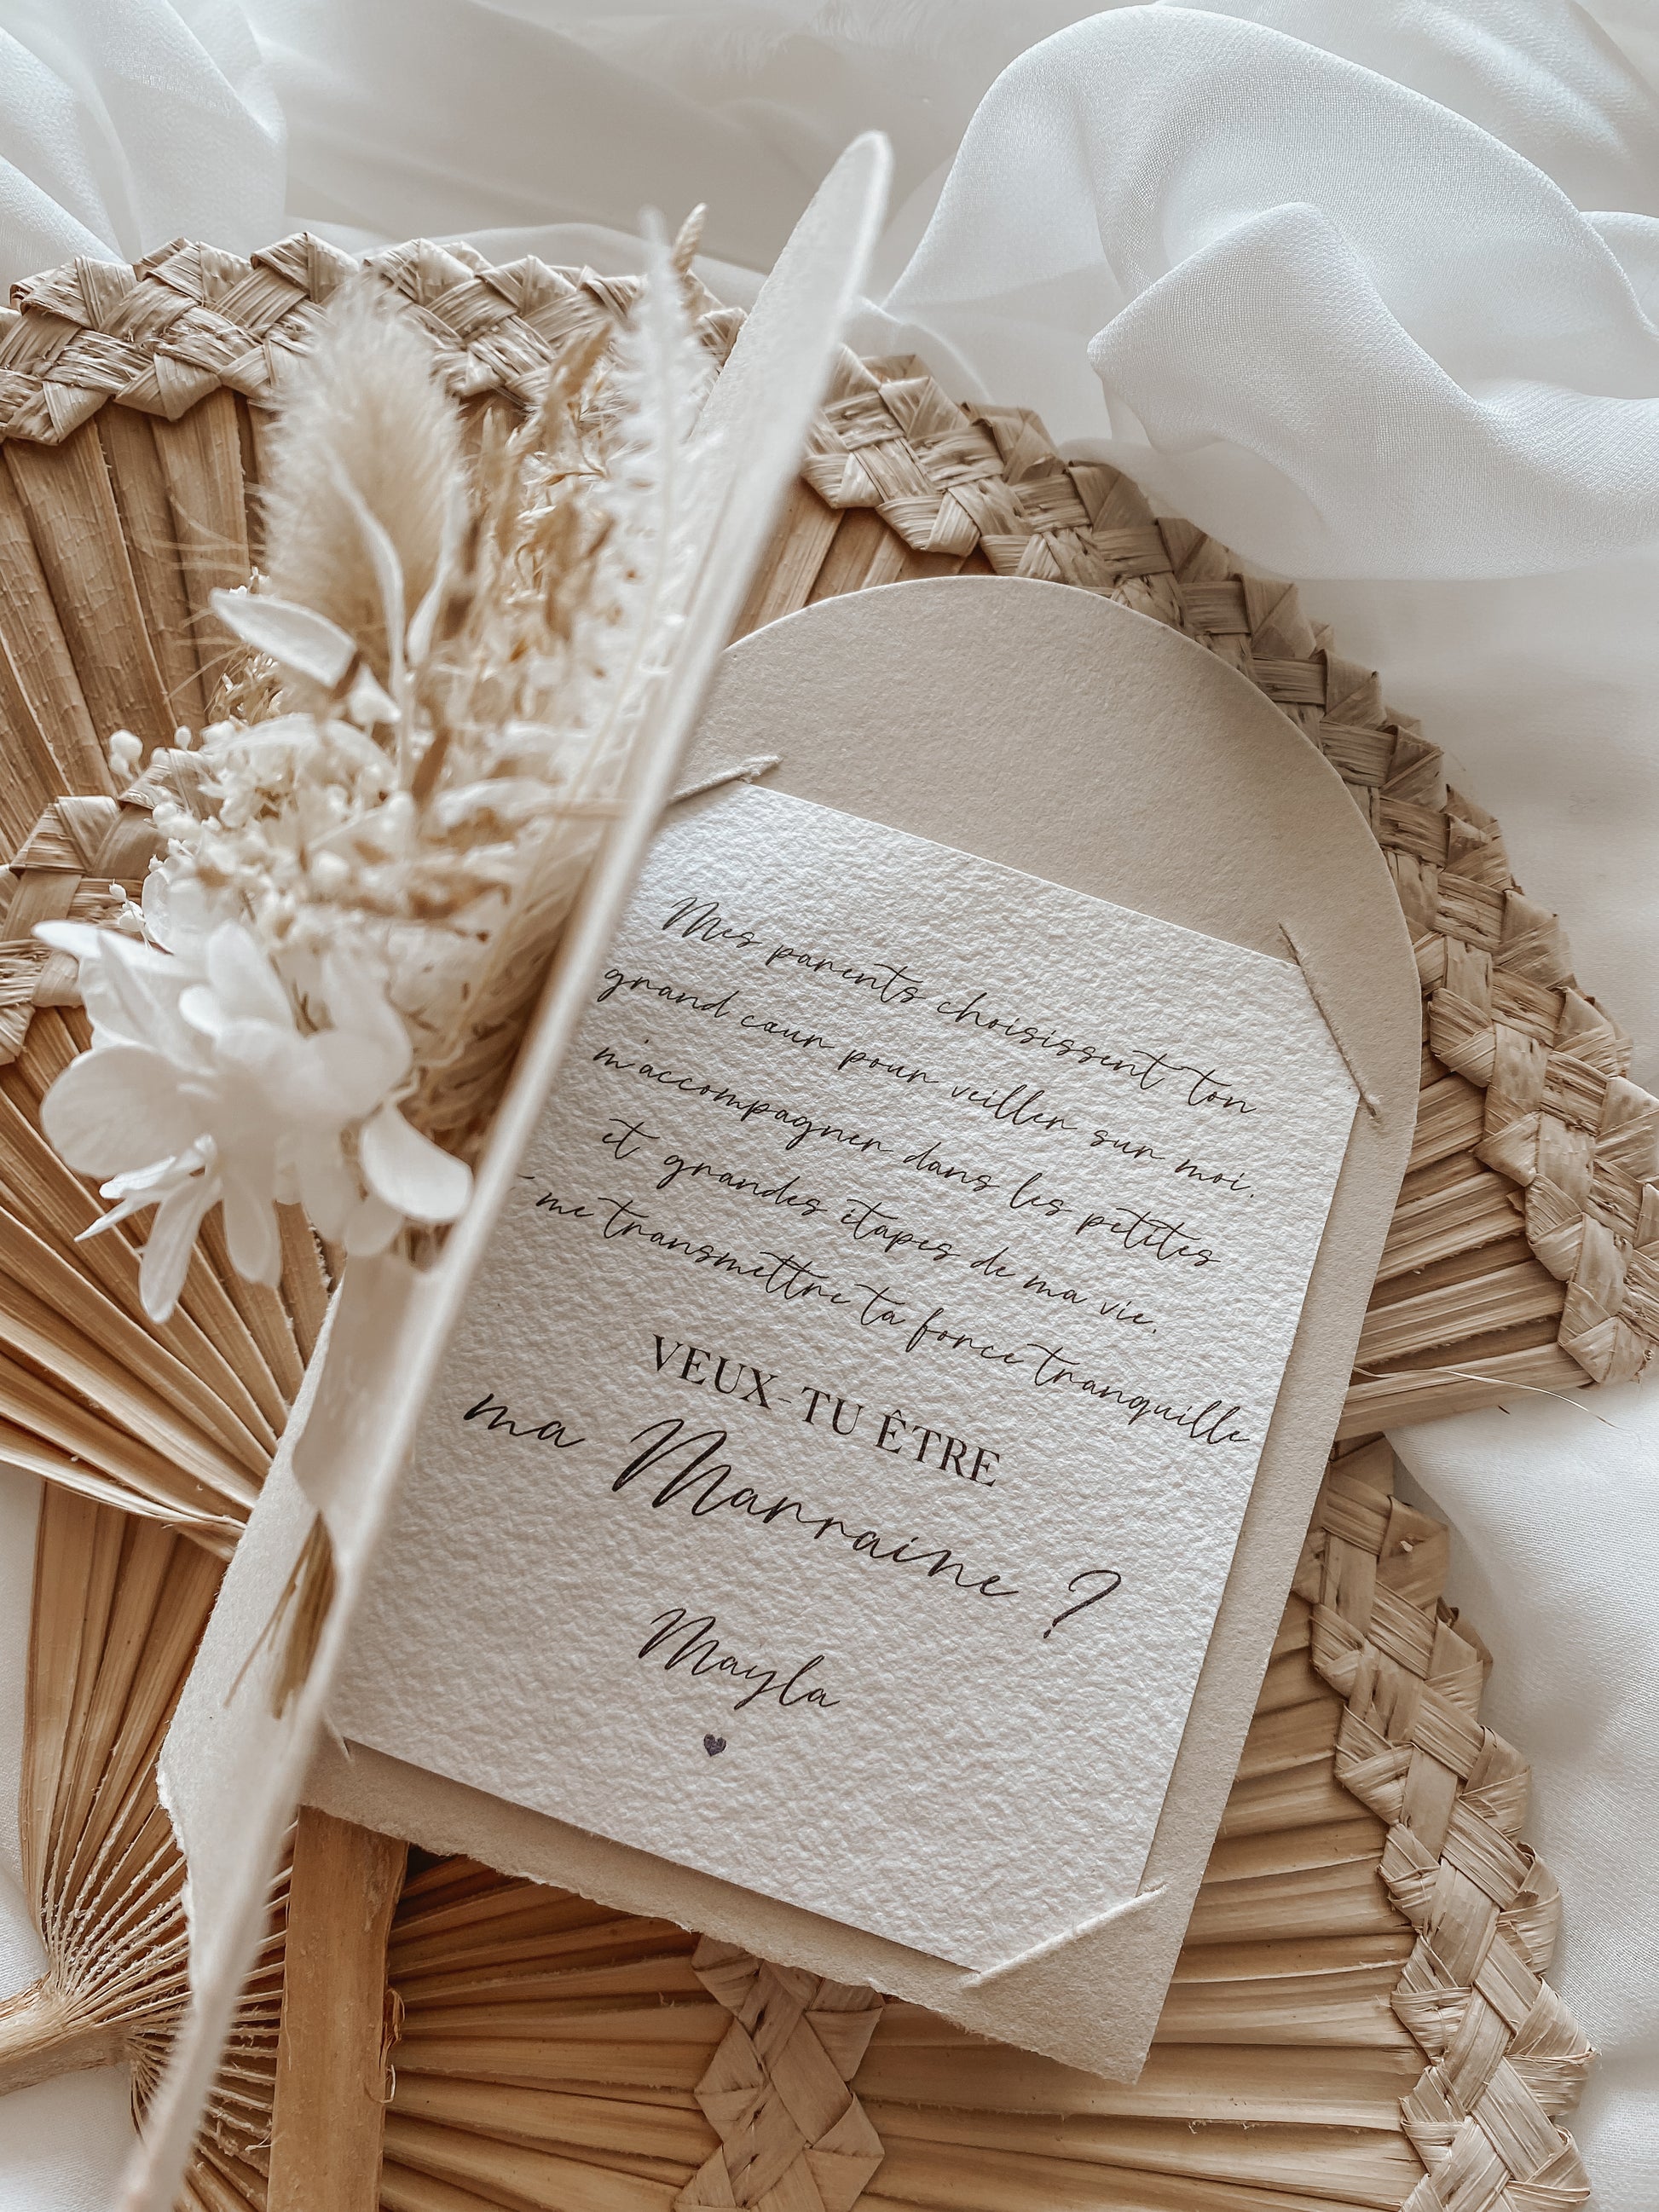 Mes parents choisissent ton
grand cœur pour veiller sur moi.
m'accompagner dans les petites
et grandes étapes de ma vie.
me transmettre ta force tranquille
VEUX-TU ÊTRE
ma Marraine ?
Mayla